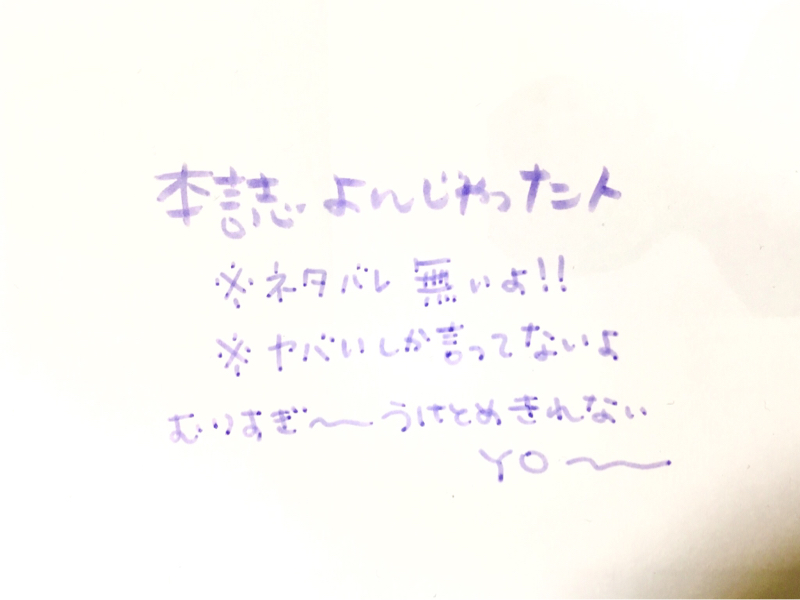 本誌よんじゃった人
※ネタバレ無いよ!!
※ヤバいしか言ってないよ
むりすぎ〜うけとめきれない
YO〜